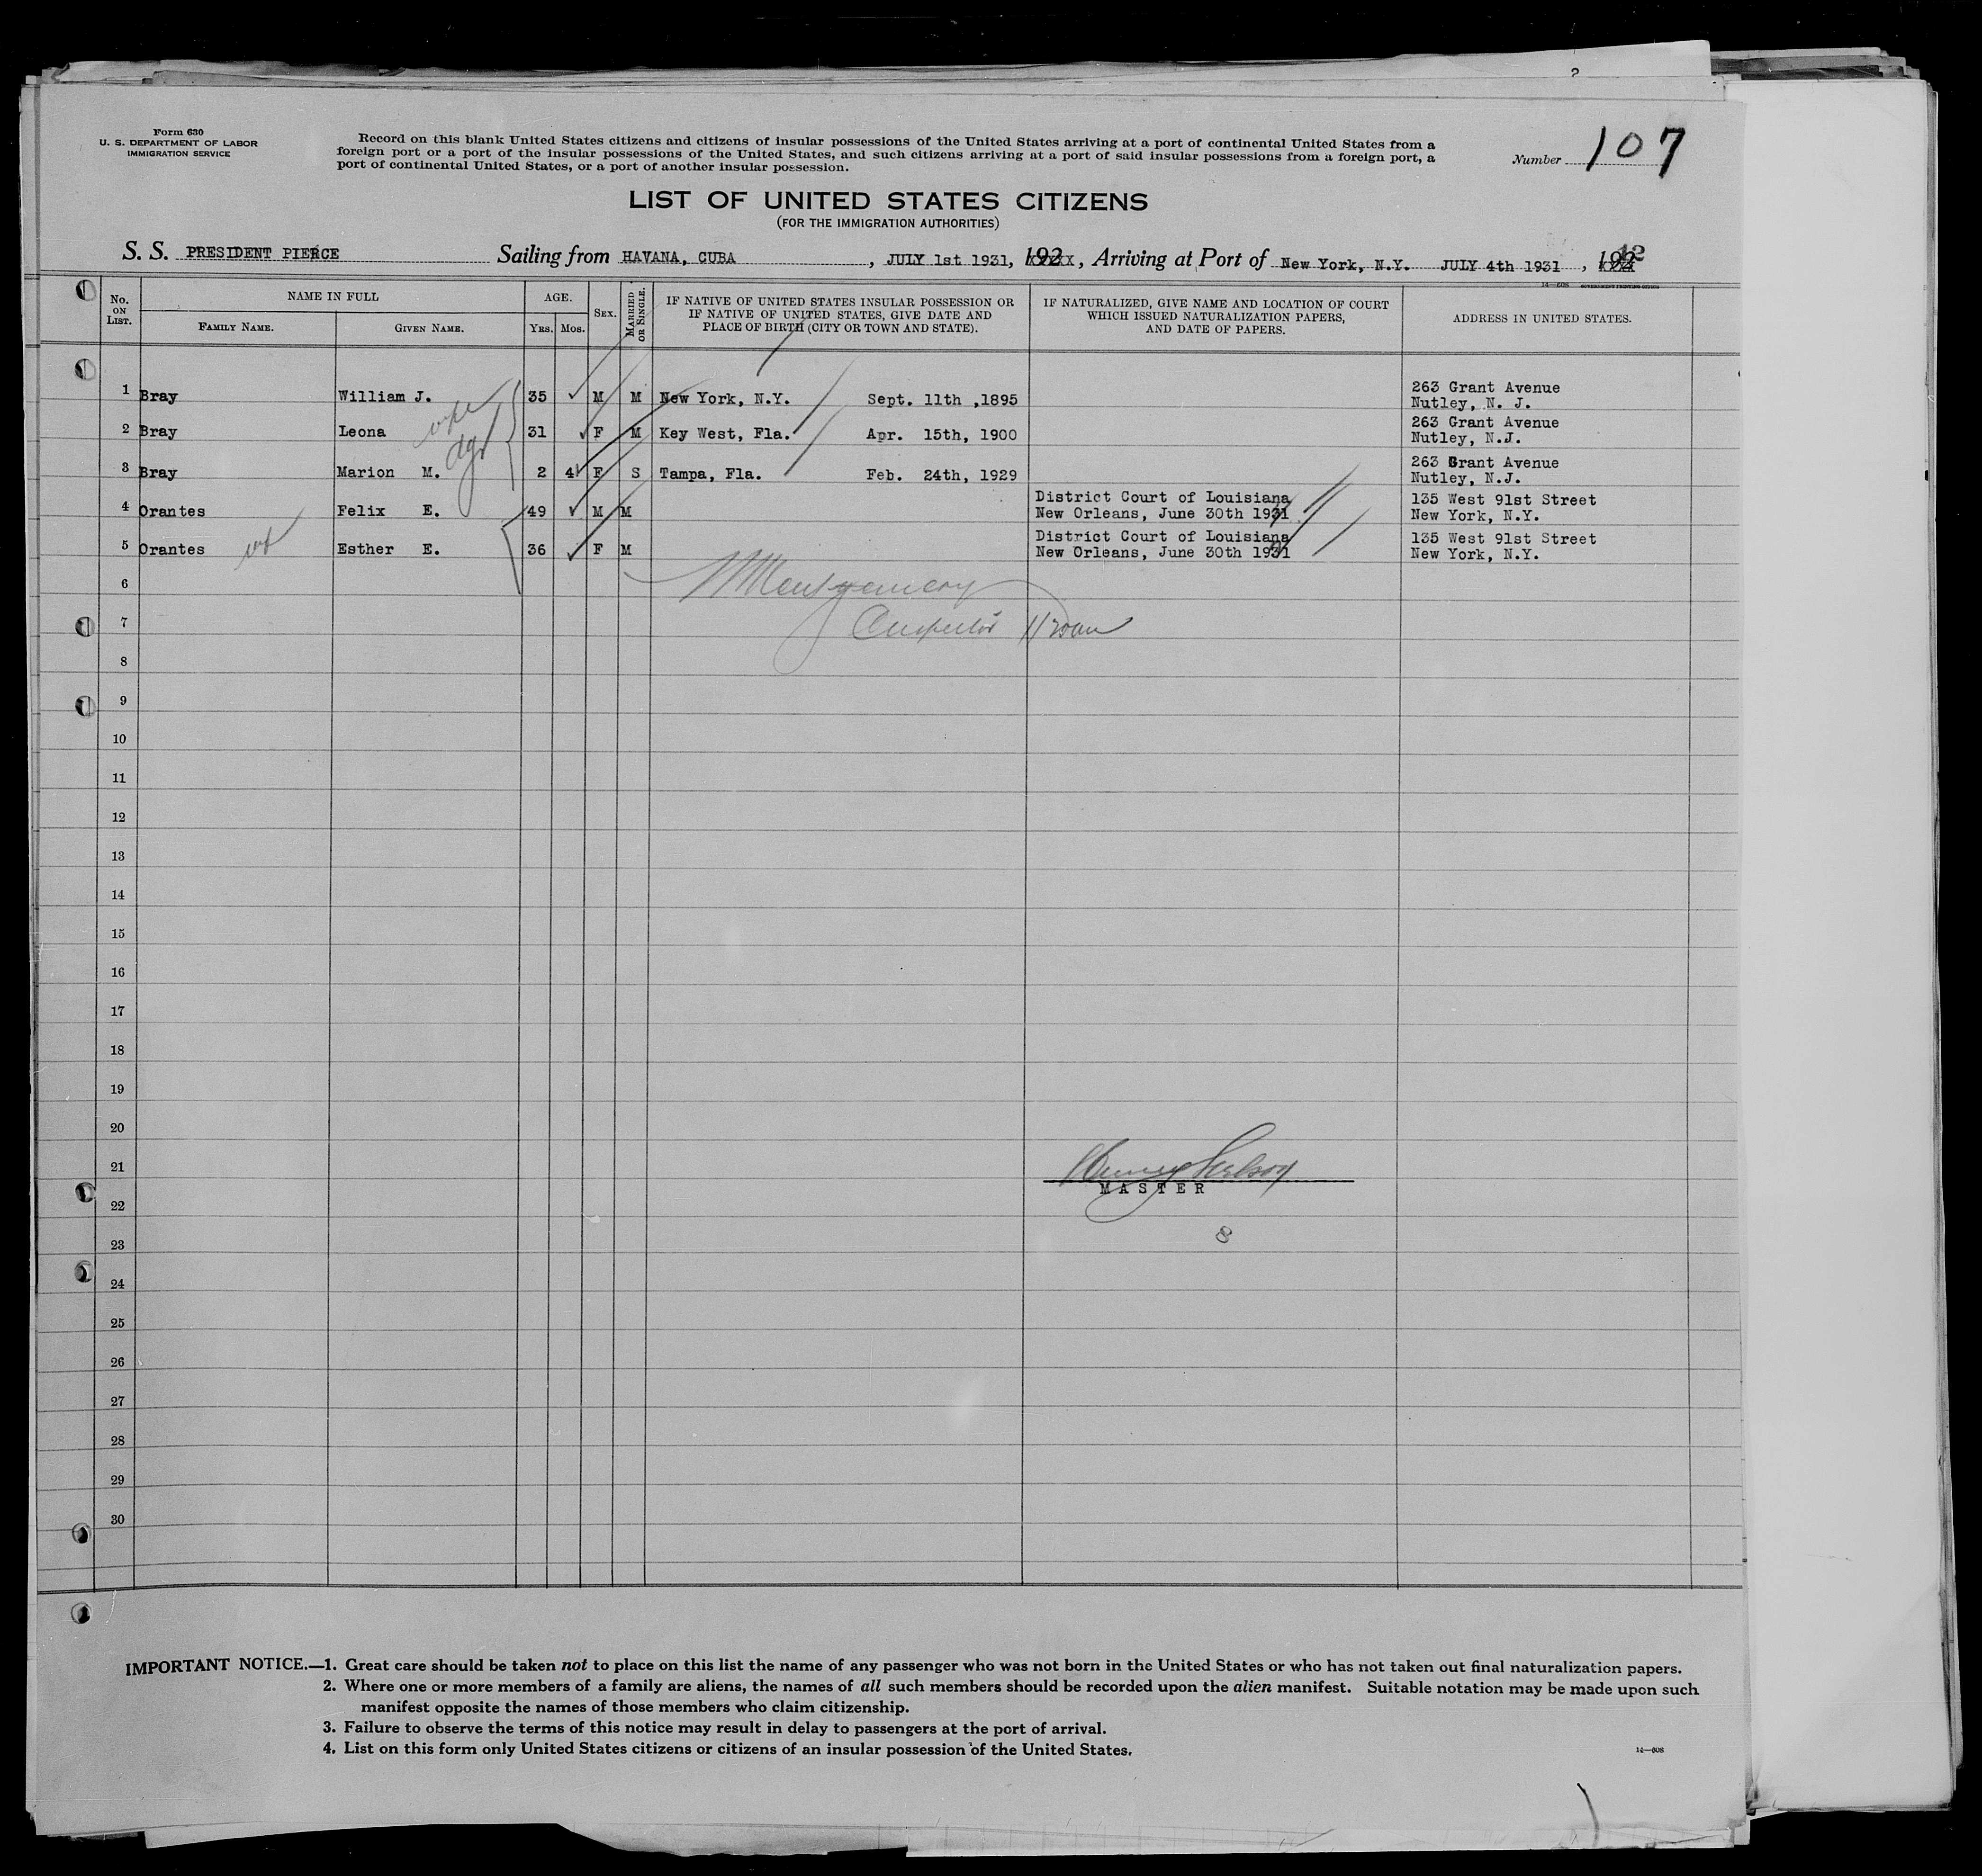 Form 630
U. S. DEPARTMENT OF LABOR
IMMIGRATION SERVICE
Record on this blank United States citizens and citizens of insular possessions of the United States arriving at a port of continental United States from a
foreign port or a port of the insular possessions of the United States, and such citizens arriving at a port of said insular possessions from a foreign port, a
port of continental United States, or a port of another insular possession.
Number 107
LIST OF UNITED STATES CITIZENS
(FOR THE IMMIGRATION AUTHORITIES)
S. S. PRESIDENT PIERCE Sailing from HAVANA, CUBA , JULY 1st 1931, 192 , Arriving at Port of New York, N.Y. JULY 4th 1931 , 192 12
14—608 GOVERNMENT PRINTING OFFICE
No. ON LIST. NAME IN FULL AGE. SEX. MARRIED OR SINGLE. IF NATIVE OF UNITED STATES INSULAR POSSESSION OR IF NATIVE OF UNITED STATES, GIVE DATE AND PLACE OF BIRTH (CITY OR TOWN AND STATE). IF NATURALIZED, GIVE NAME AND LOCATION OF COURT WHICH ISSUED NATURALIZATION PAPERS, AND DATE OF PAPERS. ADDRESS IN UNITED STATES.
FAMILY NAME. GIVEN NAME. YRS. MOS.
1 Bray William J. 35 M M New York, N.Y. Sept. 11th ,1895 263 Grant Avenue
Nutley, N. J.
2 Bray Leona wife 31 F M Key West, Fla. Apr. 15th, 1900 263 Grant Avenue
Nutley, N.J.
3 Bray Marion M. dgt 2 4 F S Tampa, Fla. Feb. 24th, 1929 263 Grant Avenue
Nutley, N.J.
4 Orantes Felix E. 49 M M District Court of Louisiana 135 West 91st Street
New Orleans, June 30th 1931 New York, N.Y.
5 Orantes wf Esther E. 36 F M District Court of Louisiana 135 West 91st Street
New Orleans, June 30th 1931 New York, N.Y.
6 Montgomery
7 Inspector
8
9
10
11
12
13
14
15
16
17
18
19
20
21
MASTER
22
23 8
24
25
26
27
28
29
30
IMPORTANT NOTICE.—1. Great care should be taken not to place on this list the name of any passenger who was not born in the United States or who has not taken out final naturalization papers.
2. Where one or more members of a family are aliens, the names of all such members should be recorded upon the alien manifest. Suitable notation may be made upon such
manifest opposite the names of those members who claim citizenship.
3. Failure to observe the terms of this notice may result in delay to passengers at the port of arrival.
4. List on this form only United States citizens or citizens of an insular possession of the United States.
14—608